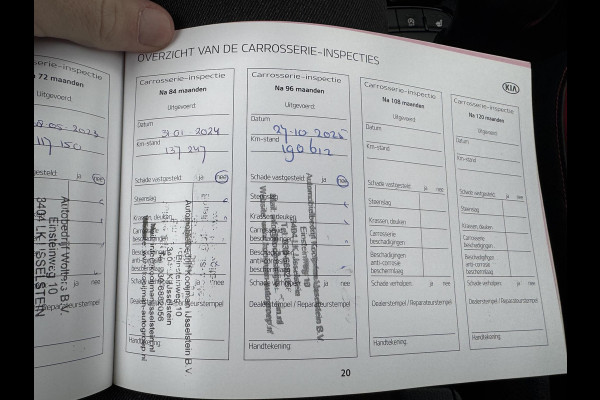 OVERZICHT VAN DE CARROSSERIE-INSPECTIES
KIA
Carrosserie-inspectie
72 maanden
Uitgevoerd:
05-2023
117 150
vastgesteld: ja nee
Autobedrijf Wolters B.V.
Einsteinweg 10
3401 LK IJSSELSTEIN
Carrosserie-inspectie
Na 84 maanden
Uitgevoerd:
Datum
31 01 2024
Km-stand
137 247
Schade vastgesteld: ja nee
Steenslag
Krassen, deuken
Carrosserie
beschadigingen
anti-corrosie
beschermlaag
nee
Dealerstempel / Reparateurstempel
Handtekening:
IJsselstein B.V.
Einsteinweg 10
IJsselstein
Carrosserie-inspectie
Na 96 maanden
Uitgevoerd:
Datum
27-10-2025
Km-stand
190612
Schade vastgesteld: ja nee
Steenslag
Krassen, deuken
Carrosserie
beschadigingen
anti-corrosie
beschermlaag
Dealerstempel / Reparateurstempel
Handtekening:
Carrosserie-inspectie
Na 108 maanden
Uitgevoerd:
Datum
Km-stand
Schade vastgesteld: ja nee
Steenslag
Krassen, deuken
Carrosserie
beschadigingen
Beschadiging
anti-corrosie
beschermlaag
Schade verholpen: ja nee
Dealerstempel / Reparateurstempel
Handtekening:
Carrosserie-inspectie
Na 120 maanden
Uitgevoerd:
Datum
Km-stand
Schade vastgesteld: ja nee
Steenslag
Krassen, deuken
Carrosserie
beschadigingen
Beschadiging
anti-corrosie
beschermlaag
Schade verholpen: ja nee
Dealerstempel / Reparateurstempel
Handtekening:
20